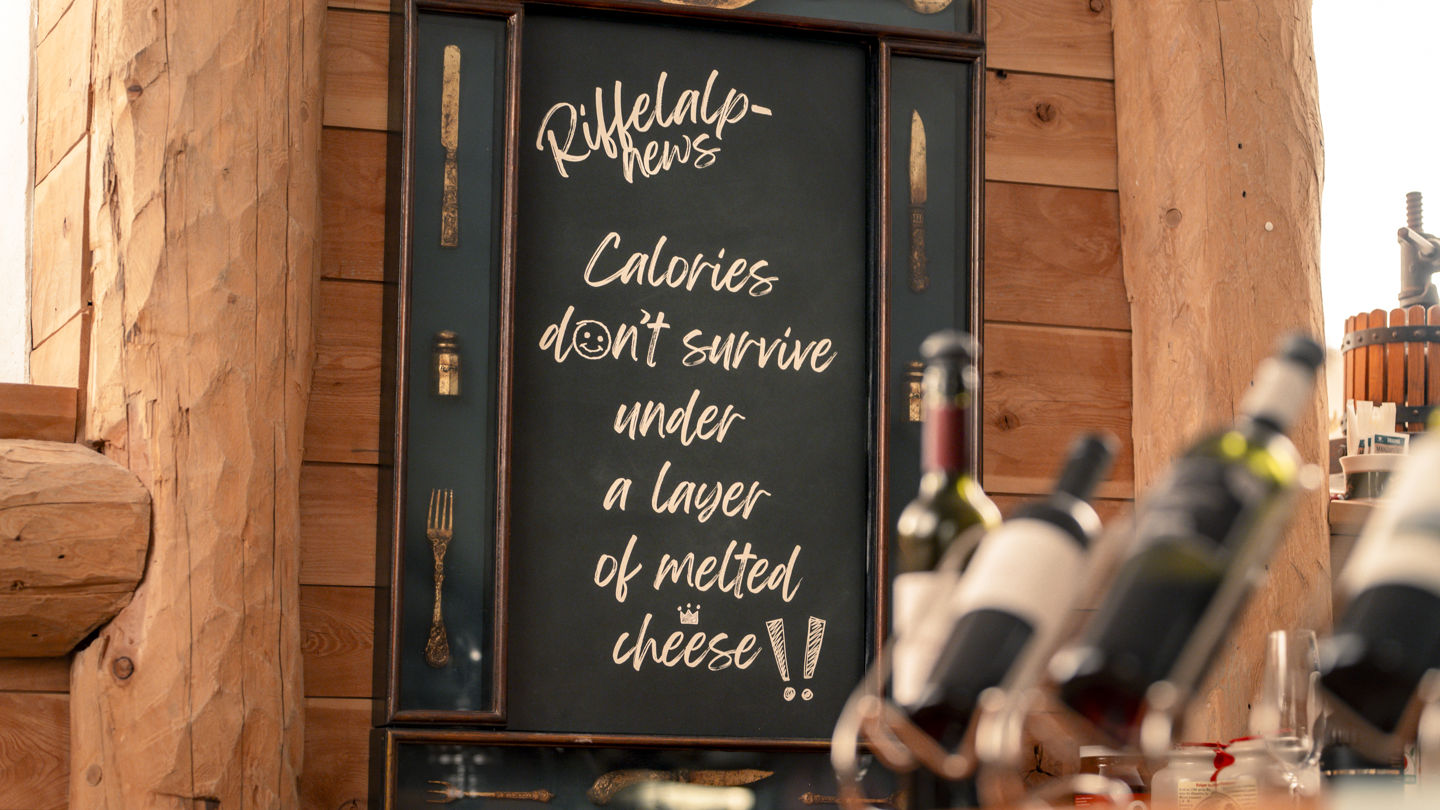 Riffelalp-
news
Calories
don't survive
under
a layer
of melted
cheese!!